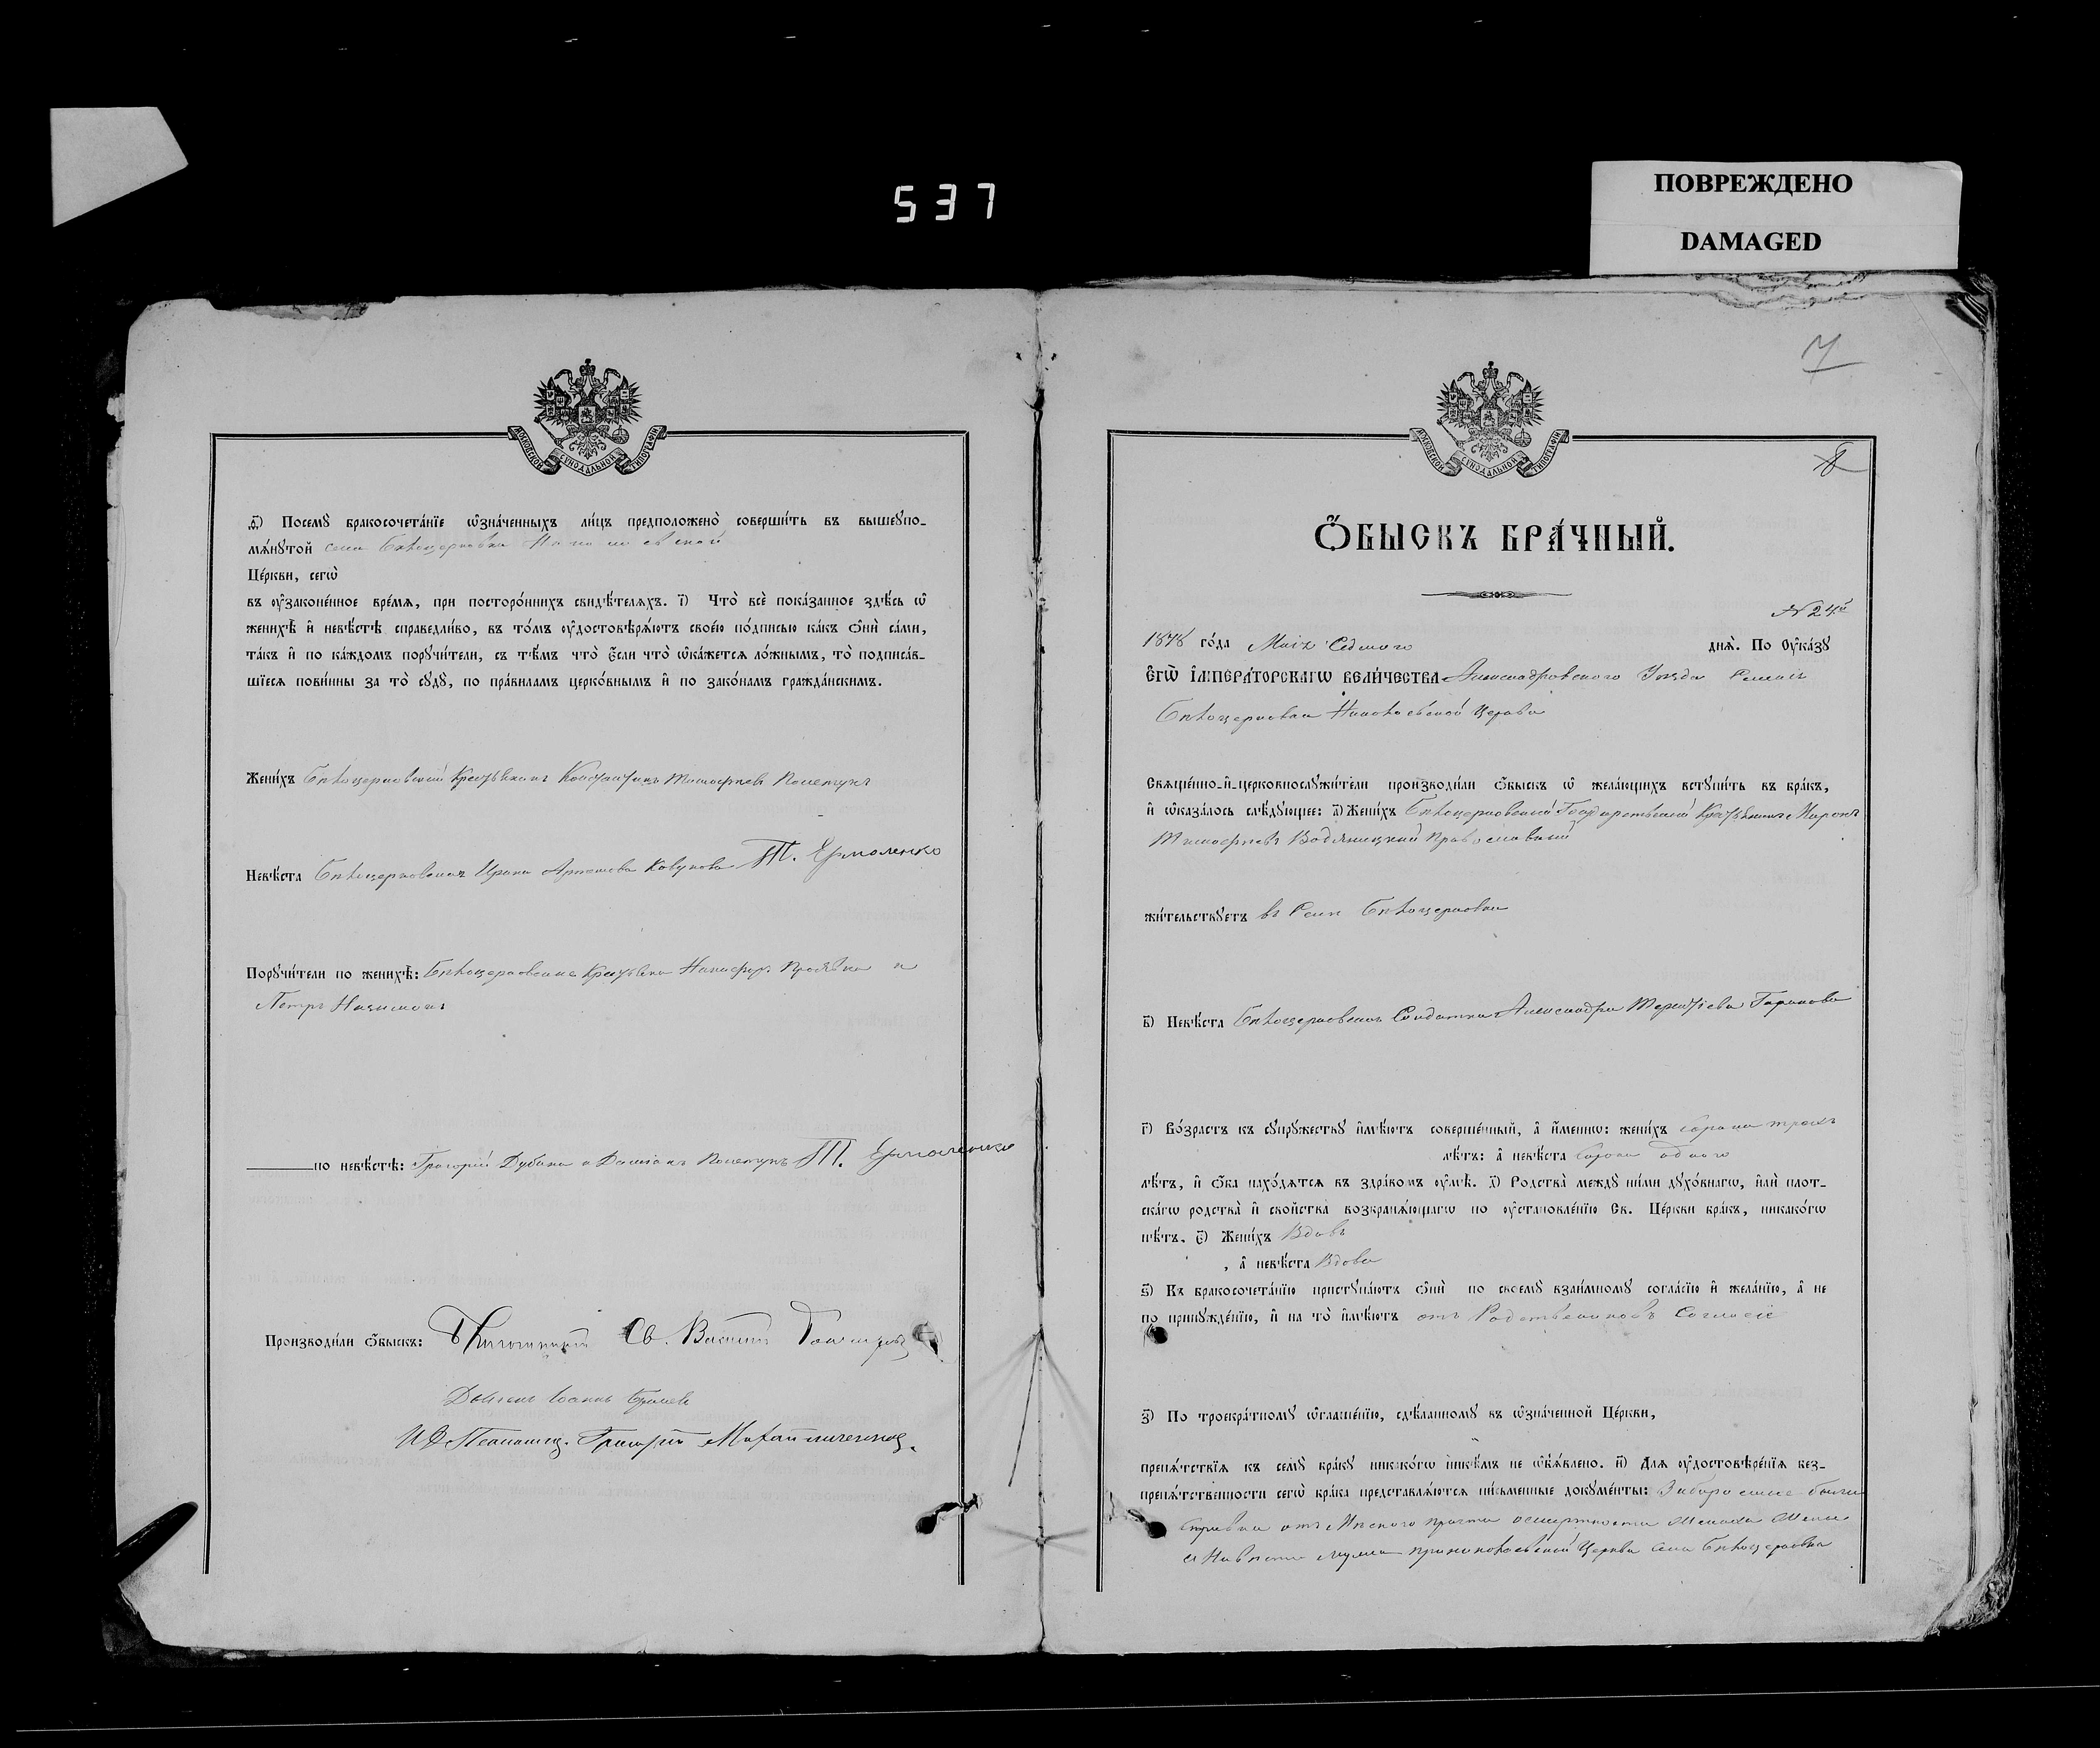 537
ПОВРЕЖДЕНО
DAMAGED
МОСКОВСКОЙ СѴНОДАЛЬНОЙ ТИПОГРАФІИ
Ѳ҃) Посемꙋ бракосочета́нїе ѡ҆зна́ченныхъ ли́цъ предположено̀ соверши́ть въ вышеꙋпо-
мѧ́нꙋтой села Бѣлоцерковки Николаевской
Це́ркви, сегѡ̀
въ ᲂу҆законе́нное вре́мѧ, при посторо́ннихъ свидѣ́телѧхъ. І҃) Что̀ всѐ пока́занное здѣ́сь ѡ҆
женихѣ̀ и҆ невѣ́стѣ справедли́во, въ то́мъ ᲂу҆достовѣрѧ́ютъ свое́ю по́дписью ка́къ ѻ҆нѝ са́ми,
та́къ и҆ по ка́ждомъ порꙋчи́тели, съ тѣ́мъ что̀ є҆́сли что̀ ѡ҆ка́жетсѧ ло́жнымъ, то̀ подписа́в-
шїесѧ пови́нны за то̀ сꙋдꙋ̀, по пра́виламъ церко́внымъ и҆ по зако́намъ гражда́нскимъ.
Жени́хъ Бѣлоцерковскій Крестьянинъ Константинъ Тимофѣевъ
Невѣ́ста Бѣлоцерковская Ирина Артемова Кавунова Т. Ермоленко
Порꙋчи́тели по женихѣ̀: Бѣлоцерковские Крестьяне Никифоръ и
Петръ
по невѣ́стѣ: Григорій Дубина и Т. Ермоленко
Производи́ли ѻ҆́быскъ: Св. Василій
Іоаннъ
И. Д. Псаломщ. Григорій
7
8
Ѻ҆́БЫСКЪ БРА́ЧНЫЙ.
N 24й
1878 го́да Маія Седмого днѧ̀. По Оу҆ка́зꙋ
Є҆ГѠ̀ І҆МПЕРА́ТОРСКАГѠ ВЕЛИ́ЧЕСТВА Александровского Уезда Селенія
Бѣлоцерковки Николаевской Церкви
Свѧще́нно-и҆-церковнослꙋжи́тели производи́ли ѻ҆́быскъ ѡ҆ жела́ющихъ встꙋпи́ть въ бра́къ,
и҆ ѡ҆каза́лось слѣ́дꙋющее: А҃) Жени́хъ Бѣлоцерковский Государственый Крестьянинъ Миронъ
Тимофѣевъ Водяницкий Православный
жи́тельствꙋетъ въ Селѣ Бѣлоцерковки
В҃) Невѣ́ста Бѣлоцерковская Солдатка Александра Терентіева
Г҃) Во́зрастъ къ сꙋпрꙋ́жествꙋ и҆мѣ́ютъ соверше́нный, а҆ и҆́меннѡ: жени́хъ сорока трехъ
лѣ́тъ: а҆ невѣ́ста сорока одного
лѣ́тъ, и҆ ѻ҆́ба нахо́дѧтсѧ въ здра́вомъ ᲂу҆мѣ̀. Д҃) Родства̀ междꙋ̀ ни́ми дꙋхо́внагѡ, и҆лѝ плот-
ска́гѡ родства̀ и҆ сво́йства̀ возбранѧ́ющагѡ по ᲂу҆становле́нїю Св. Це́ркви бра́къ, никако́гѡ
нѣ́тъ. Є҃) Жени́хъ Вдовъ
, а҆ невѣ́ста Вдова
Ѕ҃) Къ бракосочета́нїю пристꙋпа́ютъ ѻ҆нѝ по своемꙋ̀ взаи́мномꙋ согла́сїю и҆ жела́нїю, а҆ не
по принꙋжде́нїю, и҆ на то̀ и҆мѣ́ютъ отъ Родственниковъ Согласіе
З҃) По троекра́тномꙋ ѡ҆глаше́нїю, сдѣ́ланномꙋ въ ѡ҆зна́ченной Це́ркви,
препѧ́тствїѧ къ семꙋ̀ бра́кꙋ никако́гѡ никѣ́мъ не ѡ҆б̾ѧ́влено. И҃) Длѧ ᲂу҆достовѣре́нїѧ без-
препѧ́тственности сегѡ̀ бра́ка представлѧ́ютсѧ пи́сьменные докꙋме́нты: были
справки отъ причта Жениха Жены
и Невѣсты мужа Николаевской Церкви села Бѣлоцерковки